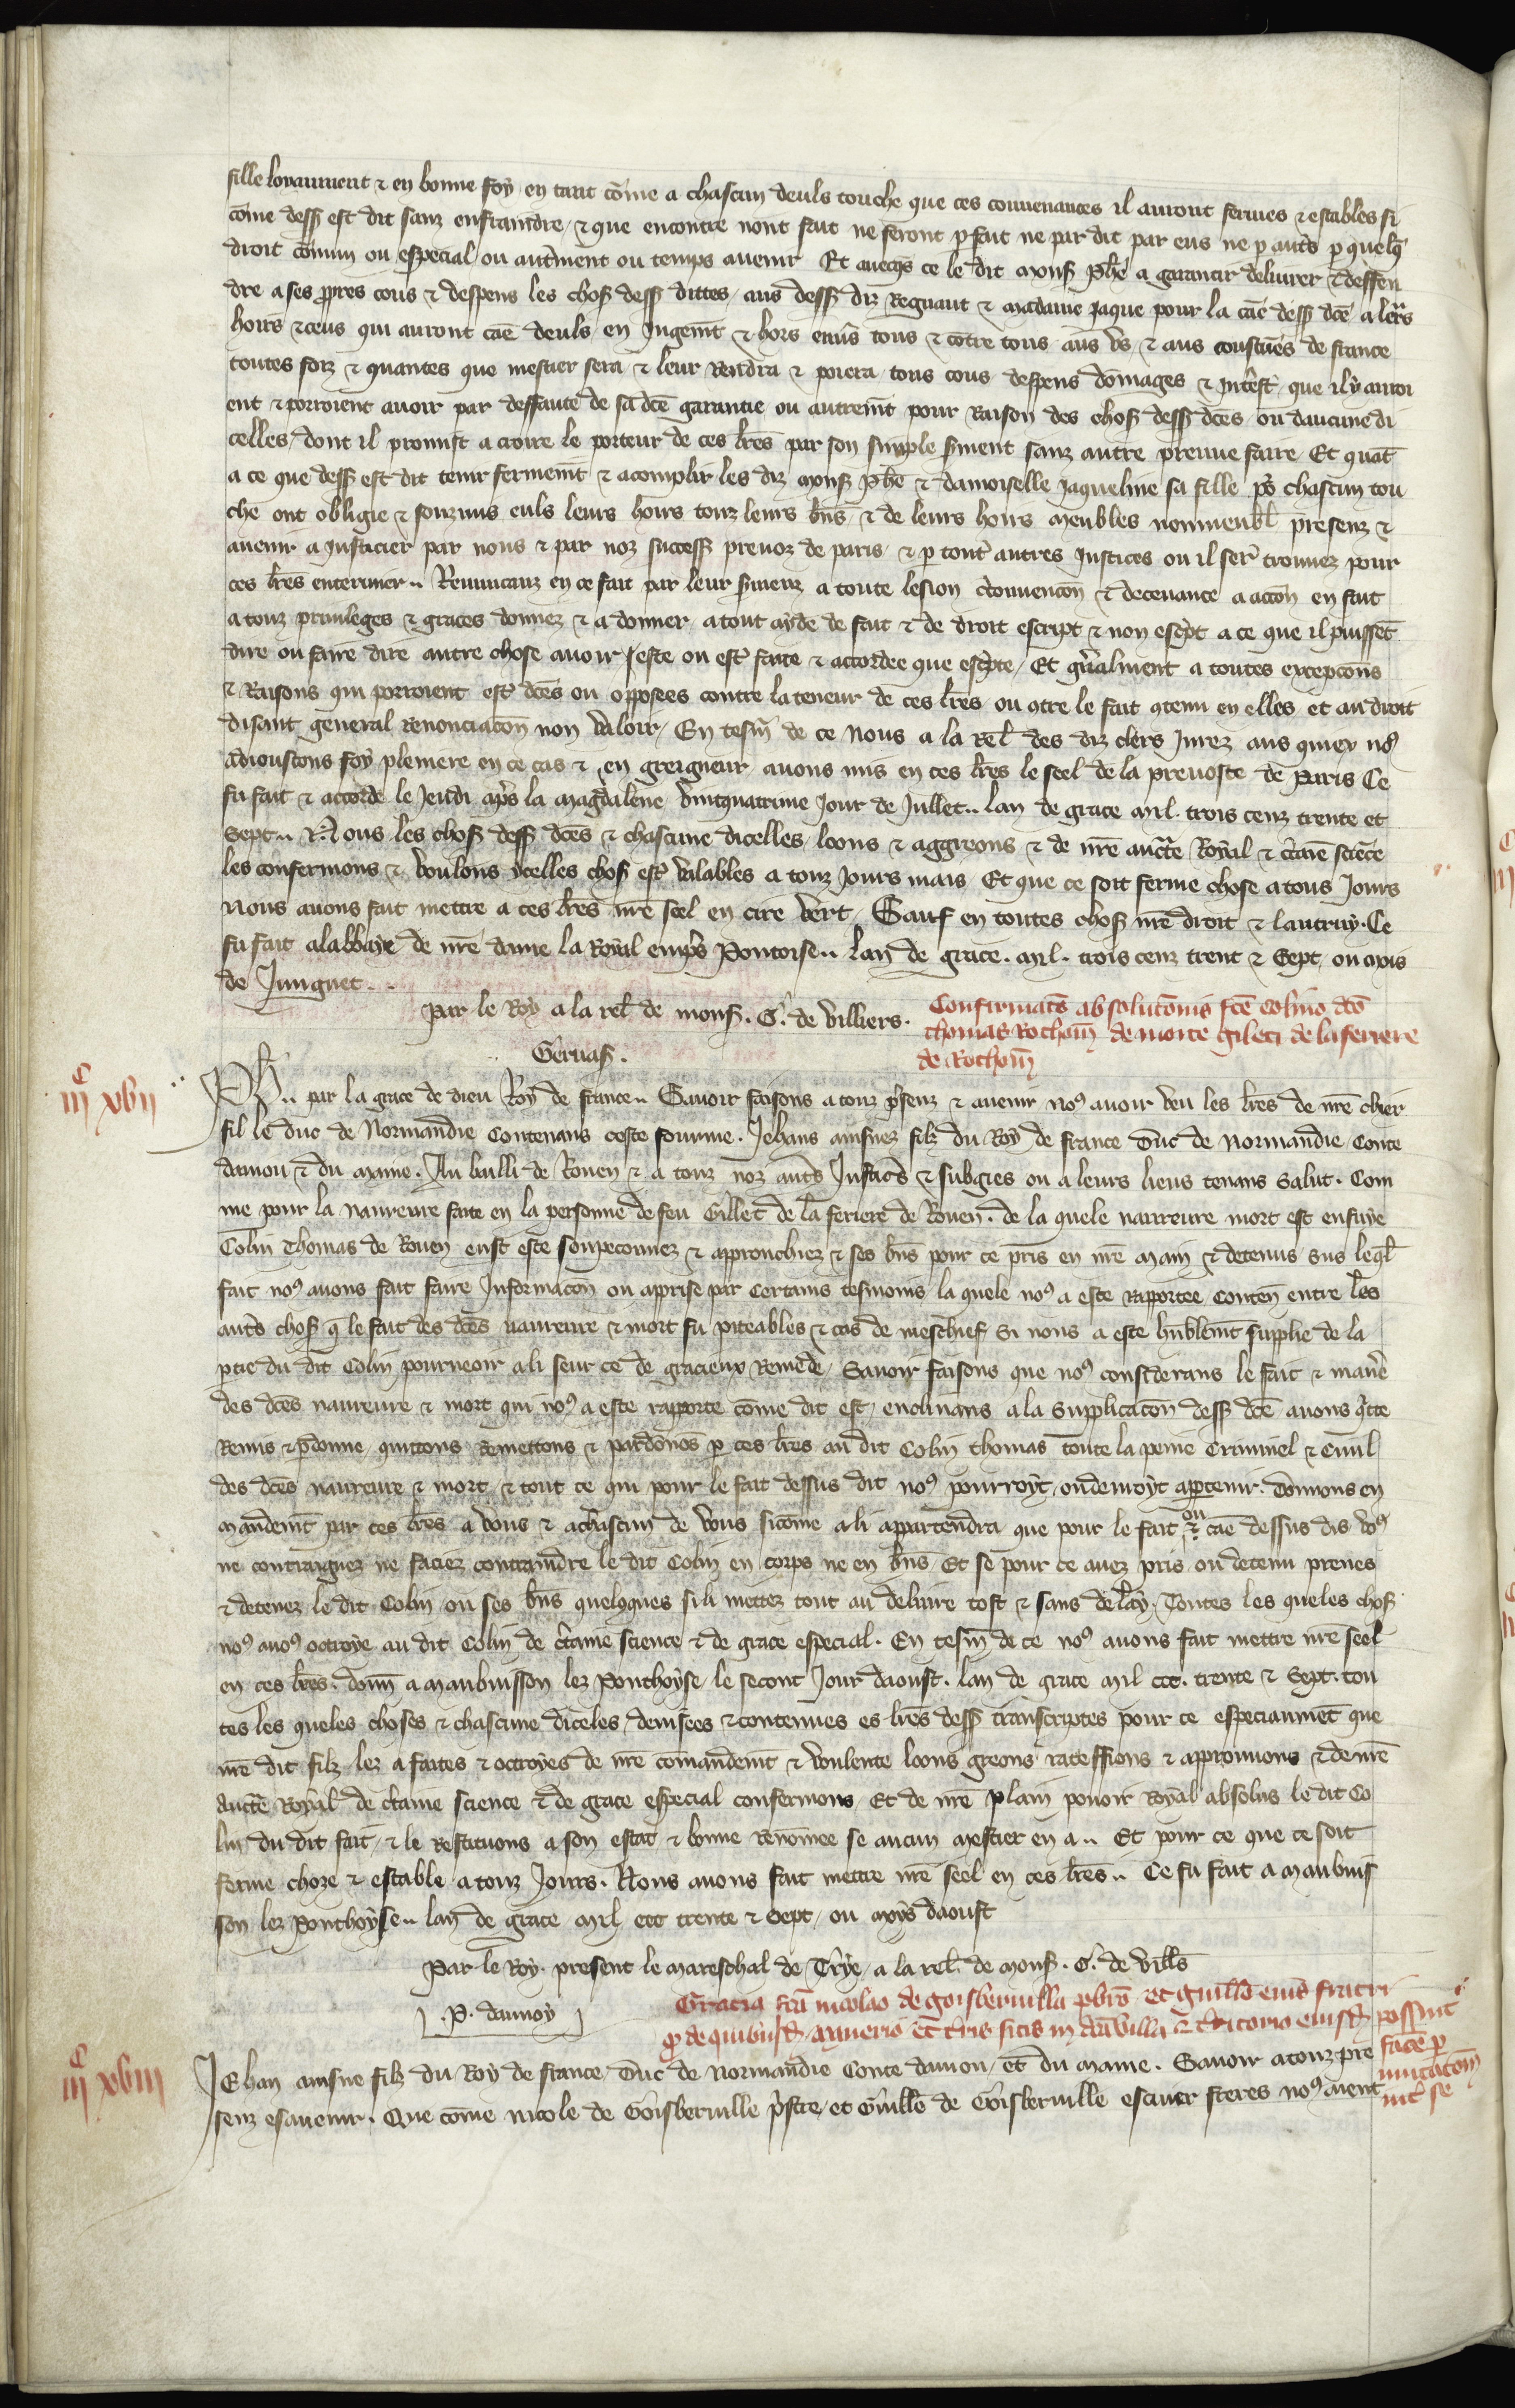 fille loyaument & en bonne foy en tant cōme a chascun deuls touche que ces conuenances il auront fermes & estables si
cōme dess est dit sanz enfraindre & que encontre nont fait ne feront p fait ne par dit par eus ne p autrs p quelq
droit cōmun ou especial ou autrment ou temps auenir Et auecqs ce le dit mons Phe a garantir deliurer & deffen
dre a ses ppres cous & despens les chos dess dittes aus dess diz Regnaut & madame Jaque pour la cāe dess dce a leurs
hoirs & ceus qui auront cāe deuls en Jugemt & hors enuers tous & cōtre tous aus vs & aus coustūes de france
toutes foiz & quantes que mestier sera & leur Rendra & poiera tous cous despens dōmages & Intest que il y auroi
ent & porroient auoir par deffaute de sa dce garantie ou autremt pour Raison des chos dess dces ou daucune di
celles dont il promist a croire le porteur de ces lres par son simple sment sanz autre preuue faire Et quāt
a ce que dess est dit tenir fermemt & acomplir les diz mons Phe & damoiselle Jaqueline sa fille po chascun tou
che ont obligie & souzmis euls leurs hoirs touz leurs bns & de leurs hoirs meubles nonmeubl presenz &
auenir a Justicier par nous & par noz success preuoz de paris & p tout autres Justices ou il ser trouuez pour
ces lres enteriner .. Renuncanz en ce fait par leur smenz a toute lesion circonuencon & deceuance a accon en fait
a touz priuileges & graces donnez & a donner a tout ayde de fait & de droit escript & non escpt a ce que il puissēt
dire ou faire dire autre chose auoir este ou est faite & accordee que escpte Et gnalment a toutes excepcons
& Raisons qui porroient est dces ou opposees contre la teneur de ces lres ou 9tre le fait 9tenu en elles et au droit
disant general renonciacon non valoir En tesm de ce Nous a la Rel des diz clers Jurez aus quiex no9
adioustons foy pleniere en ce cas & en greigneur auons mis en ces lres le seel de la preuoste de Paris Ce
fu fait & accorde le Jeudi aprs la magdalene vintquatrime Jour de Jullet .. lan de grace mil. trois cenz trente et
Sept .. Nous les chos dess dces & chascune dicelles loons & aggreons & de nre aucte Royal & ctaie sciēce
les confermons & voulons ycelles chos est valables a touz Jours mais Et que ce soit ferme chose a tous Jours
Nous auons fait mettre a ces lres nre seel en cire vert Sauf en toutes chos nre droit & lautruy. Ce
fu fait a labbaye de nre dame la Royal emprs Pontoise .. lan de grace. mil. trois cenz trent & Sept ou mois
de Jungnet ..
Par le Roy a la rel de mons. G. de villiers.
Confirmato absolutōnis fce colino dco
thomas Rothom de morte gileti de la ferrere
de Rothom
Geruas.
iijc xvij
Ph .. par la grace de dieu Roy de france .. Sauoir faisons a touz psenz & auenir no9 auoir veu les lres de nre chier
fil le duc de Normandie Contenans ceste fourme. Jehans ainsnez filz du Roy de france Duc de normandie Conte
daniou & du mayne. Au bailli de Rouen & a touz noz autrs Justicrs & subgies ou a leurs lieus tenans Salut. Com
me pour la naureure faite en la personne de feu Gillet de la feriere de Rouen. de la quele naureure mort est ensuye
Colin Thomas de Rouen eust este soupeconnez & approuchiez & ses bns pour ce pris en nre main & detenus sus leql
fait no9 auons fait faire Informacōn ou apprise par certains tesmoins la quele no9 a este rapportee Conten entre les
autrs chos q le fait des dces naureure & mort fu piteables & cas de meschief Si nous a este humblemt supplie de la
ptie du dit Colin pourueoir a li seur ce de gracieux Remede Sauoir faisons que no9 considerans le fait & maniere
des dces naureure & mort qui no9 a este rapporte cōme dit est enclinans a la Supplicacōn dess dce auons qitte
Remis & pdonne quittons Remettons & pardonōs p ces lres au dit Colin thomas toute la peine Criminel & Ciuil
des dces naureure & mort & tout ce qui pour le fait dessus dit no9 pourroyt ou deuroyt aptenir. Donnons en
mandemt par ces lres a vous & a chascun de vous sicōme a li appartendra que pour le fait ou cāe dessus dis vo9
ne contraignez ne faciez contraindre le dit Colin en corps ne en bns Et se pour ce auez pris ou detenu prenes
& detenez le dit Colin ou ses bns quelxques si li mettez tout au deliure tost & sans delay. Toutes les queles chos
no9 auo9 octroye au dit Colin de ctaine science & de grace especial. En tesm de ce no9 auons fait mettre nre seel
en ces lres. donn a maubuisson lez Ponthoyse le secont Jour daoust. lan de grace mil ccc. trente & Sept. tou
tes les queles choses & chascune diceles deuisees & contenues es lres dess transcriptes pour ce especiaumēt que
nre dit filz lez a faites & octroyes de nre comandemt & voulente loons greons rateffions & approuuons & de nre
aucte Royal de ctaine science & de grace especial confermons Et de nre plain pouoir Royal absolus le dit Co
lin du dit fait & le Restituons a son estat & bonne renōmee se aucun mestier en a .. Et pour ce que ce soit
ferme choze & estable a touz Jours. Nous auons fait mettre nre seel en ces lres .. Ce fu fait a maubuis
son lez Ponthoyse .. lan de grace mil ccc trente & Sept ou moys daoust
Par le Roy. present le mareschal de Trye a la rel. de mons. G. de vills
.P. daunoy
Gracia fca nicolao de goisleruilla pbro et guillo eius fratri
q de quibusd et tris sitis in possint
facere p
mutacōm
int se
iijc xviij
Jehan ainsne filz du Roy de france Duc de normandie Conte daniou et du maine. Sauoir a touz pre
senz & auenir. Que cōme nicole de Goisleruille pstre et Guille de Goisleruille escuier freres no9 aient